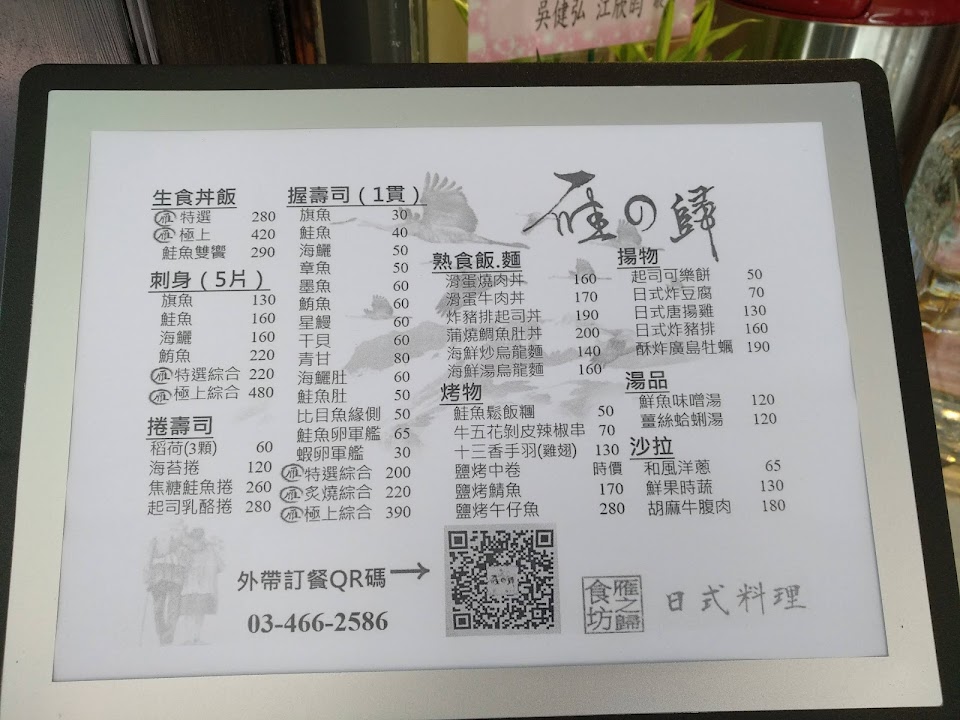 吳健弘 江欣昀
雁の歸
生食丼飯
雁 特選 280
雁 極上 420
鮭魚雙饗 290
刺身（5片）
旗魚 130
鮭魚 160
海鱺 160
鮪魚 220
雁 特選綜合 220
雁 極上綜合 480
捲壽司
稻荷(3顆) 60
海苔捲 120
焦糖鮭魚捲 260
起司乳酪捲 280
握壽司（1貫）
旗魚 30
鮭魚 40
海鱺 50
章魚 50
墨魚 60
鮪魚 60
星鰻 60
干貝 60
青甘 80
海鱺肚 60
鮭魚肚 50
比目魚緣側 50
鮭魚卵軍艦 65
蝦卵軍艦 30
雁 特選綜合 200
雁 炙燒綜合 220
雁 極上綜合 390
熟食飯.麵
滑蛋燒肉丼 160
滑蛋牛肉丼 170
炸豬排起司丼 190
蒲燒鯛魚肚丼 200
海鮮炒烏龍麵 140
海鮮湯烏龍麵 160
烤物
鮭魚鬆飯糰 50
牛五花剝皮辣椒串 70
十三香手羽(雞翅) 130
鹽烤中卷 時價
鹽烤鯖魚 170
鹽烤午仔魚 280
揚物
起司可樂餅 50
日式炸豆腐 70
日式唐揚雞 130
日式炸豬排 160
酥炸廣島牡蠣 190
湯品
鮮魚味噌湯 120
薑絲蛤蜊湯 120
沙拉
和風洋蔥 65
鮮果時蔬 130
胡麻牛腹肉 180
外帶訂餐QR碼→
03-466-2586
雁之歸
食坊
日式料理